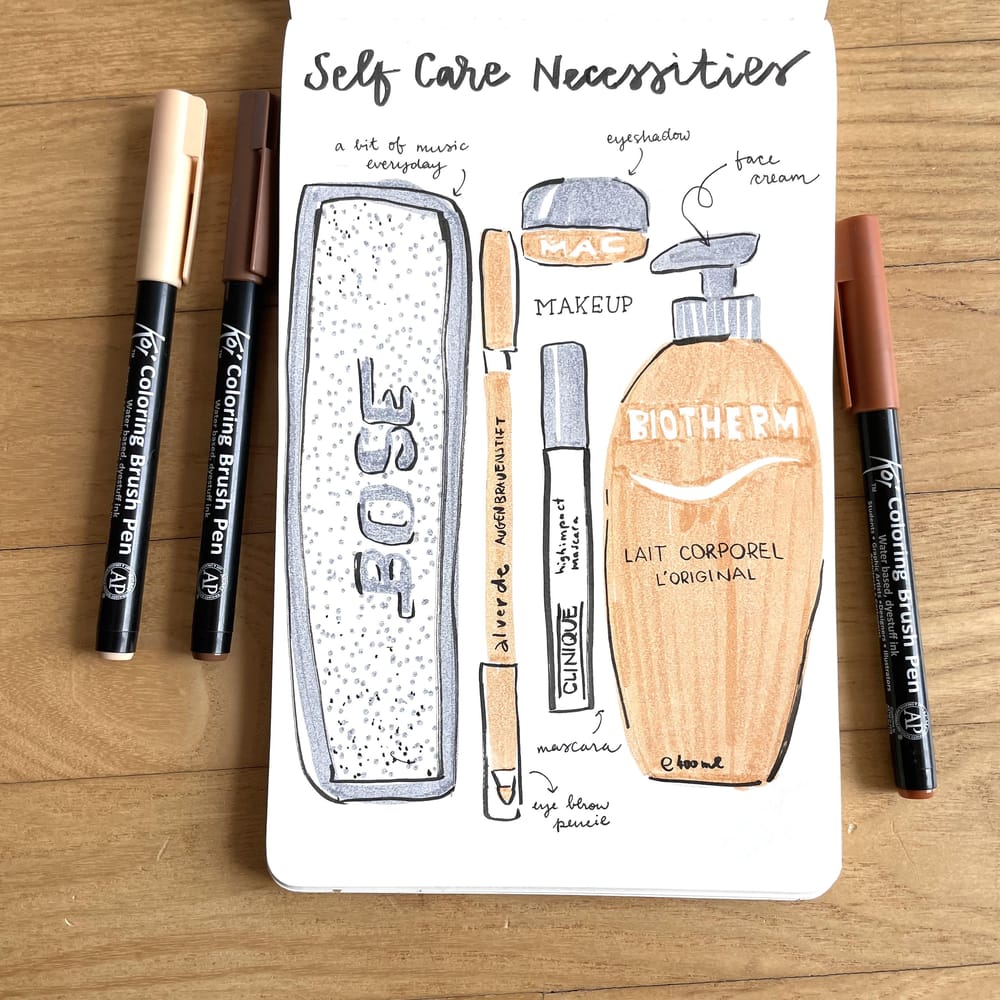 Self Care Necessities
a bit of music
everyday
eyeshadow
face
cream
MAC
MAKEUP
BOSE
alverde AUGENBRAUENSTIFT
high impact
mascara
CLINIQUE
BIOTHERM
LAIT CORPOREL
L'ORIGINAL
e 400 ml
mascara
eye brow
pencil
Koi Coloring Brush Pen
TM
Water based, dyestuff ink
AP
Koi Coloring Brush Pen
TM
Water based, dyestuff ink
AP
Koi Coloring Brush Pen
TM
Water based, dyestuff ink
Students • Graphic Artists • Designers • Illustrators
AP